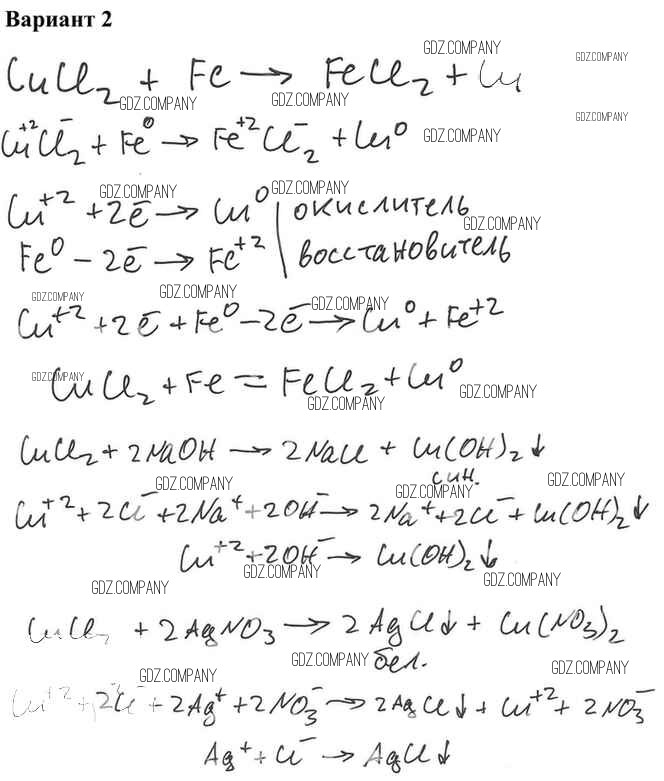 Вариант 2
GDZ.COMPANY GDZ.COMPANY
CuCl₂ + Fe → FeCl₂ + Cu
GDZ.COMPANY GDZ.COMPANY GDZ.COMPANY
Cu⁺²Cl⁻₂ + Fe⁰ → Fe⁺²Cl⁻₂ + Cu⁰ GDZ.COMPANY
GDZ.COMPANY GDZ.COMPANY
Cu⁺² + 2ē → Cu⁰ | окислитель
GDZ.COMPANY
Fe⁰ - 2ē → Fe⁺² | восстановитель
GDZ.COMPANY GDZ.COMPANY GDZ.COMPANY
Cu⁺² + 2ē + Fe⁰ - 2ē → Cu⁰ + Fe⁺²
GDZ.COMPANY
CuCl₂ + Fe = FeCl₂ + Cu⁰ GDZ.COMPANY
GDZ.COMPANY
CuCl₂ + 2NaOH → 2NaCl + Cu(OH)₂↓
син.
GDZ.COMPANY GDZ.COMPANY GDZ.COMPANY
Cu⁺² + 2Cl⁻ + 2Na⁺ + 2OH⁻ → 2Na⁺ + 2Cl⁻ + Cu(OH)₂↓
Cu⁺² + 2OH⁻ → Cu(OH)₂↓
GDZ.COMPANY GDZ.COMPANY GDZ.COMPANY
CuCl₂ + 2AgNO₃ → 2AgCl↓ + Cu(NO₃)₂
GDZ.COMPANY бел. GDZ.COMPANY
GDZ.COMPANY
Cu⁺² + 2Cl⁻ + 2Ag⁺ + 2NO₃⁻ → 2AgCl↓ + Cu⁺² + 2NO₃⁻
Ag⁺ + Cl⁻ → AgCl↓